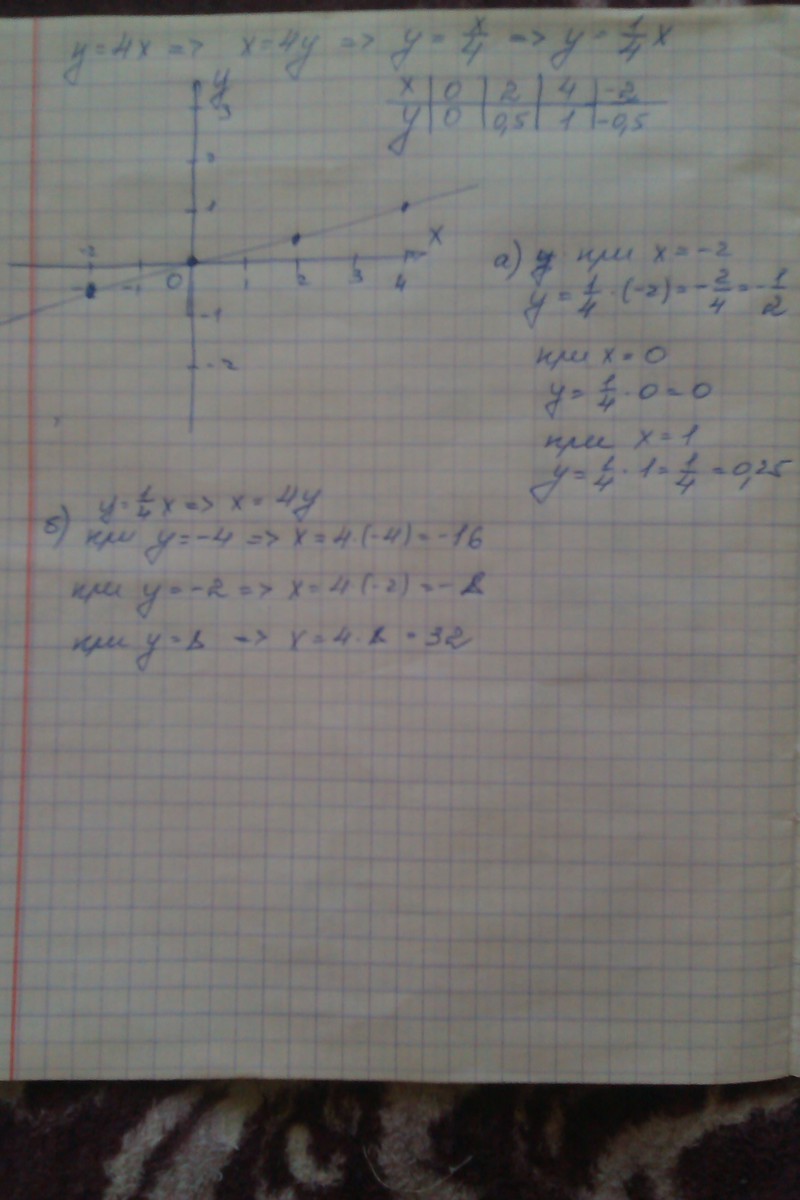 y=4x => x=4y => y=x/4 => y=1/4x
x | 0 | 2 | 4 | -2
y | 0 | 0,5 | 1 | -0,5
y
3
2
1
x
-2 -1 0 1 2 3 4
-1
-2
а) y при x=-2
y=1/4·(-2)=-2/4=-1/2
при x=0
y=1/4·0=0
при x=1
y=1/4·1=1/4=0,25
б) y=1/4x => x=4y
при y=-4 => x=4·(-4)=-16
при y=-2 => x=4·(-2)=-8
при y=8 => x=4·8=32